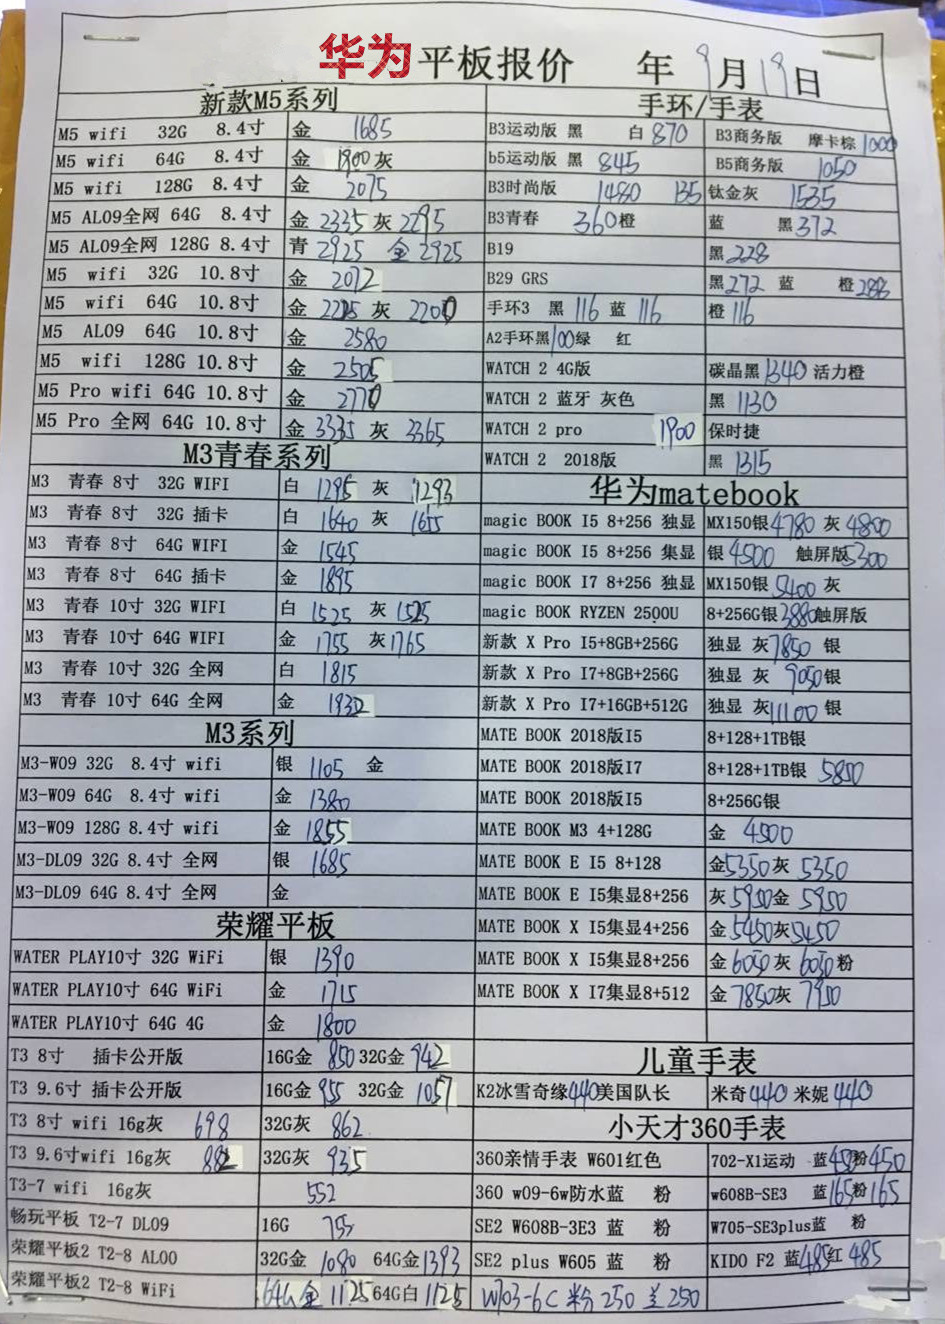 华为 平板报价 年 9月19日
新款M5系列
M5 wifi 32G 8.4寸 金 1685
M5 wifi 64G 8.4寸 金 1900 灰
M5 wifi 128G 8.4寸 金 2075
M5 AL09全网 64G 8.4寸 金 2335 灰 2295
M5 AL09全网 128G 8.4寸 青 2925 金 2925
M5 wifi 32G 10.8寸 金 2072
M5 wifi 64G 10.8寸 金 2215 灰 2200
M5 AL09 64G 10.8寸 金 2580
M5 wifi 128G 10.8寸 金 2505
M5 Pro wifi 64G 10.8寸 金 2770
M5 Pro 全网 64G 10.8寸 金 3335 灰 3365
M3青春系列
M3 青春 8寸 32G WIFI 白 1295 灰 1293
M3 青春 8寸 32G 插卡 白 1640 灰 1655
M3 青春 8寸 64G WIFI 金 1545
M3 青春 8寸 64G 插卡 金 1895
M3 青春 10寸 32G WIFI 白 1525 灰 1525
M3 青春 10寸 64G WIFI 金 1755 灰 1765
M3 青春 10寸 32G 全网 白 1815
M3 青春 10寸 64G 全网 金 1932
M3系列
M3-W09 32G 8.4寸 wifi 银 1105 金
M3-W09 64G 8.4寸 wifi 金 1380
M3-W09 128G 8.4寸 wifi 金 1855
M3-DL09 32G 8.4寸 全网 银 1685
M3-DL09 64G 8.4寸 全网 金
荣耀平板
WATER PLAY10寸 32G WiFi 银 1390
WATER PLAY10寸 64G WiFi 金 1715
WATER PLAY10寸 64G 4G 金 1800
T3 8寸 插卡公开版 16G金 850 32G金 942
T3 9.6寸 插卡公开版 16G金 955 32G金 1057
T3 8寸 wifi 16g灰 698 32G灰 862
T3 9.6寸wifi 16g灰 882 32G灰 935
T3-7 wifi 16g灰 552
畅玩平板 T2-7 DL09 16G 755
荣耀平板2 T2-8 AL00 32G金 1080 64G金 1393
荣耀平板2 T2-8 WiFi 64G 金 1125 64G白 1125
手环/手表
B3运动版 黑 白 870 B3商务版 摩卡棕 1000
b5运动版 黑 845 B5商务版 1050
B3时尚版 1480 135 钛金灰 1535
B3青春 360橙 蓝 黑 372
B19 黑 228
B29 GRS 黑 272 蓝 橙 288
手环3 黑 116 蓝 116 橙 116
A2手环黑 100 绿 红
WATCH 2 4G版 碳晶黑 1340 活力橙
WATCH 2 蓝牙 灰色 黑 1130
WATCH 2 pro 1900 保时捷
WATCH 2 2018版 黑 1315
华为matebook
magic BOOK I5 8+256 独显 MX150银 4780 灰 4800
magic BOOK I5 8+256 集显 银 4500 触屏版 5300
magic BOOK I7 8+256 独显 MX150银 5400 灰
magic BOOK RYZEN 2500U 8+256G银 3880 触屏版
新款 X Pro I5+8GB+256G 独显 灰 7850 银
新款 X Pro I7+8GB+256G 独显 灰 9050 银
新款 X Pro I7+16GB+512G 独显 灰 11100 银
MATE BOOK 2018版I5 8+128+1TB银
MATE BOOK 2018版I7 8+128+1TB银 5850
MATE BOOK 2018版I5 8+256G银
MATE BOOK M3 4+128G 金 4500
MATE BOOK E I5 8+128 金 5350 灰 5350
MATE BOOK E I5集显8+256 灰 5950 金 5950
MATE BOOK X I5集显4+256 金 5450 灰 5450
MATE BOOK X I5集显8+256 金 6050 灰 6050 粉
MATE BOOK X I7集显8+512 金 7850 灰 7950
儿童手表
K2冰雪奇缘 440 美国队长 米奇 440 米妮 440
小天才360手表
360亲情手表 W601红色 702-X1运动 蓝 450 粉 450
360 w09-6w防水蓝 粉 w608B-SE3 蓝 165 粉 165
SE2 W608B-3E3 蓝 粉 W705-SE3plus蓝 粉
SE2 plus W605 蓝 粉 KIDO F2 蓝 485 红 485
W703-6C 粉 250 兰 250